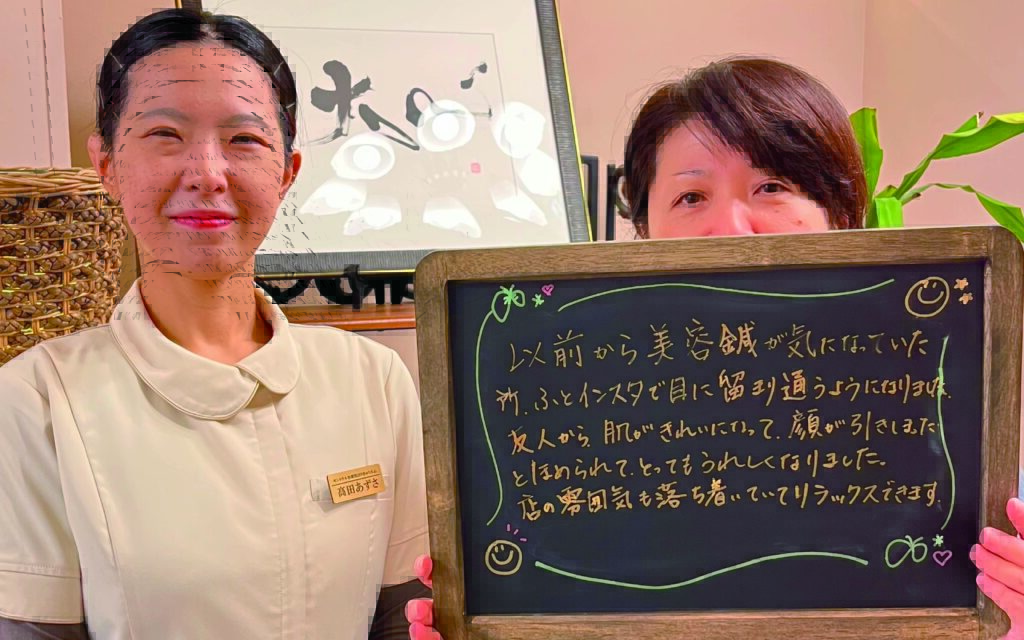 高田あずさ
以前から美容鍼が気になっていた
所、ふとインスタで目に留まり通うようになりました。
友人から、肌がきれいになって、顔が引きしまった
とほめられて、とってもうれしくなりました。
店の雰囲気も落ち着いていてリラックスできます。